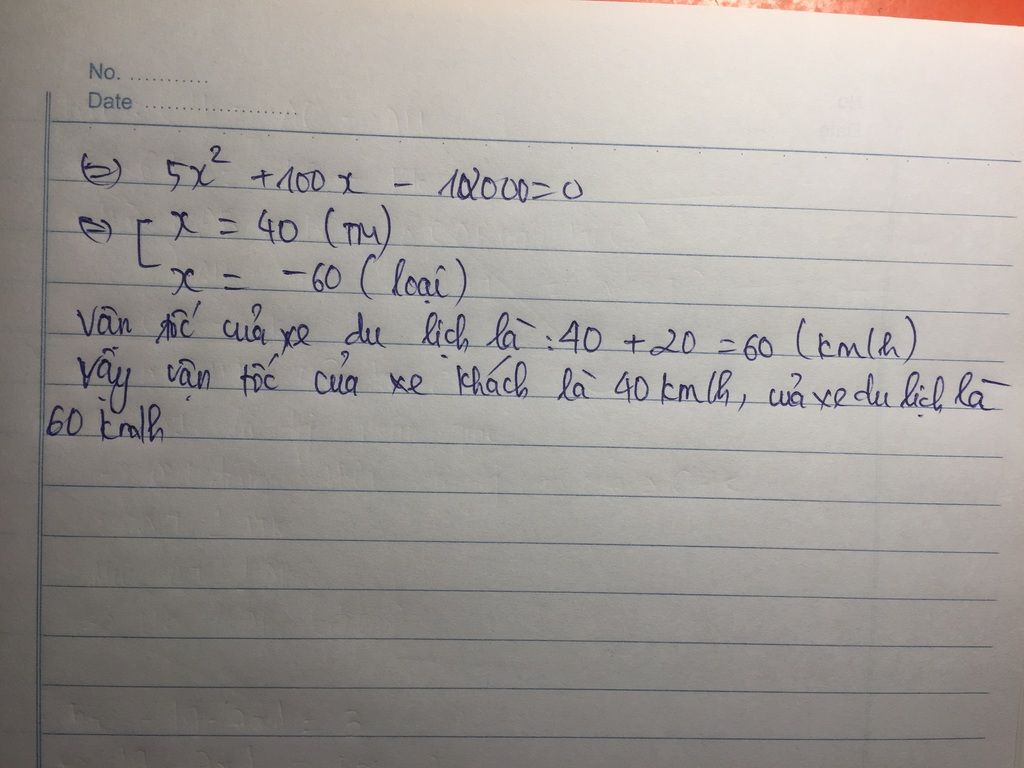 No. ...........
Date .....................
⇔ 5x² + 100x - 12000 = 0
⇔ [ x = 40 (TM)
x = -60 (loại)
Vận tốc của xe du lịch là: 40 + 20 = 60 (km/h)
Vậy vận tốc của xe khách là 40 km/h, của xe du lịch là
60 km/h